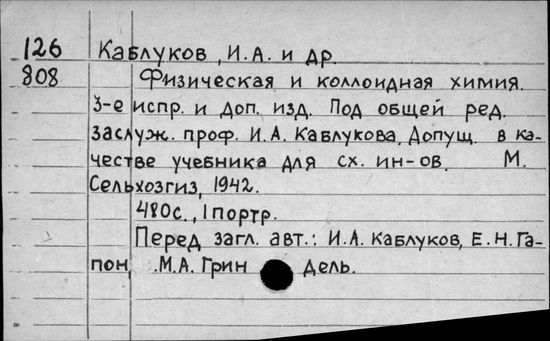 126 Каблуков, И.А. и др.
808 Физическая и коллоидная химия.
3-е испр. и доп. изд. Под общей ред.
заслуж. проф. И.А. Каблукова. Допущ. в ка-
честве учебника для сх. ин-ов. М.
Сельхозгиз, 1942.
480с., 1 портр.
Перед загл. авт.: И.А. Каблуков, Е.Н. Га-
пон, М.А. Грин дель.